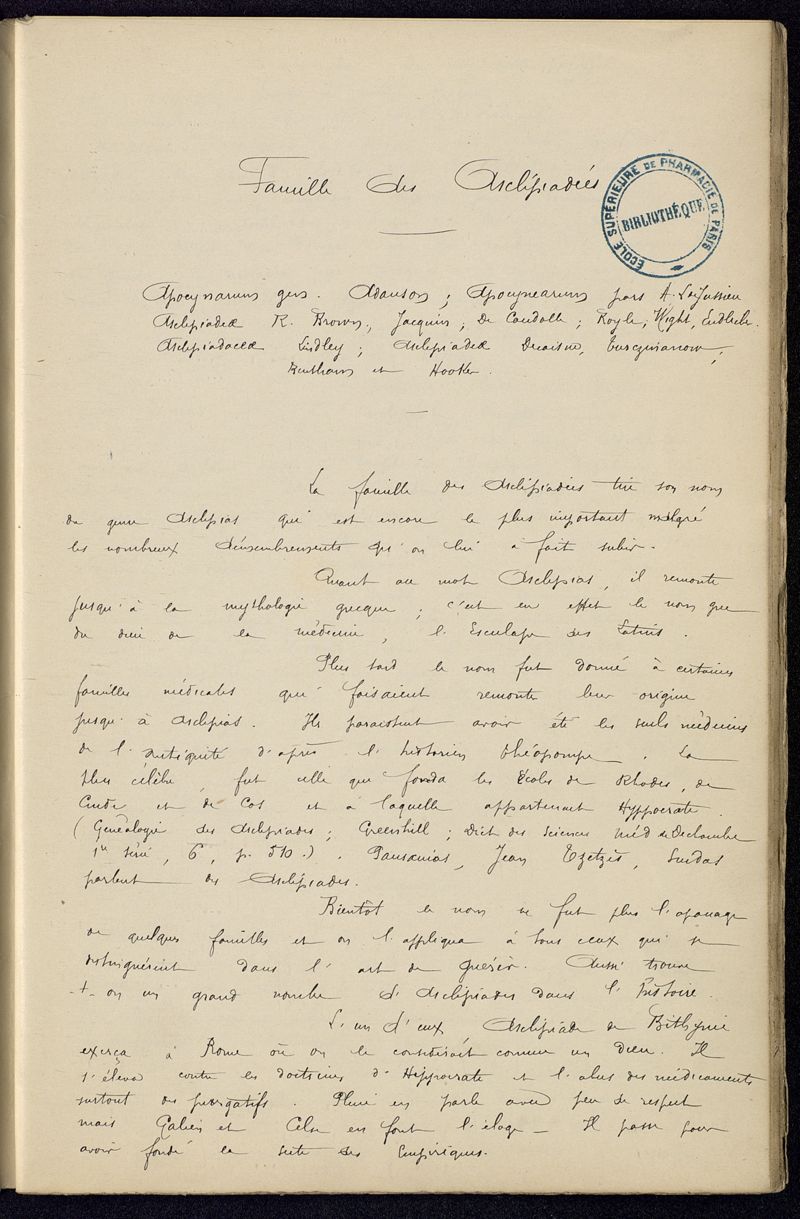 Famille des Asclépiadées
ÉCOLE SUPÉRIEURE DE PHARMACIE DE PARIS
BIBLIOTHÉQUE
Apocynarum gen. Adanson ; Apocynearum pars A. L. de Jussieu
Asclepiadeæ R. Brown, Jacquin ; De Candolle ; Royle, Wight, Endlich.
Asclepiadaceæ Lindley ; Asclepiadeæ Decaisne, Turczaninow ;
Bentham et Hooker.
La famille des Asclépiadées tire son nom
du genre Asclepias qui est encore le plus important malgré
les nombreux démembrements qu'on lui a fait subir.
Quant au mot Asclepias, il remonte
jusqu'à la mythologie grecque ; c'est en effet le nom grec
du dieu de la médecine, l'Esculape des Latins.
Plus tard le nom fut donné à certaines
familles médicales qui faisaient remonter leur origine
jusqu'à Asclepias. Ils paraissent avoir été les seuls médecins
de l'antiquité d'après l'historien Théopompe. La
plus célèbre fut celle qui fonda les Ecoles de Rhodes, de
Cnide et de Cos et à laquelle appartenait Hyppocrate.
(Généalogie des Asclépiades ; Greenhill ; Dict des Sciences Méd de Dechambre
1re série, 6, p. 510.). Pausanias, Jean Tzetzès, Suidas
parlent des Asclépiades.
Bientôt le nom ne fut plus l'apanage
de quelques familles et on l'appliqua à tous ceux qui se
distinguèrent dans l'art de guérir. Aussi trouve
-t-on un grand nombre d'Asclépiades dans l'histoire.
L'un d'eux Asclépiade de Bithynie
exerça à Rome où on le considérait comme un Dieu. Il
s'éleva contre les doctrines d'Hippocrate et l'abus des médicaments
surtout des purgatifs. Pline en parle avec peu de respect
mais Galien et Celse en font l'éloge — Il passe pour
avoir fondé la secte des Empiriques.